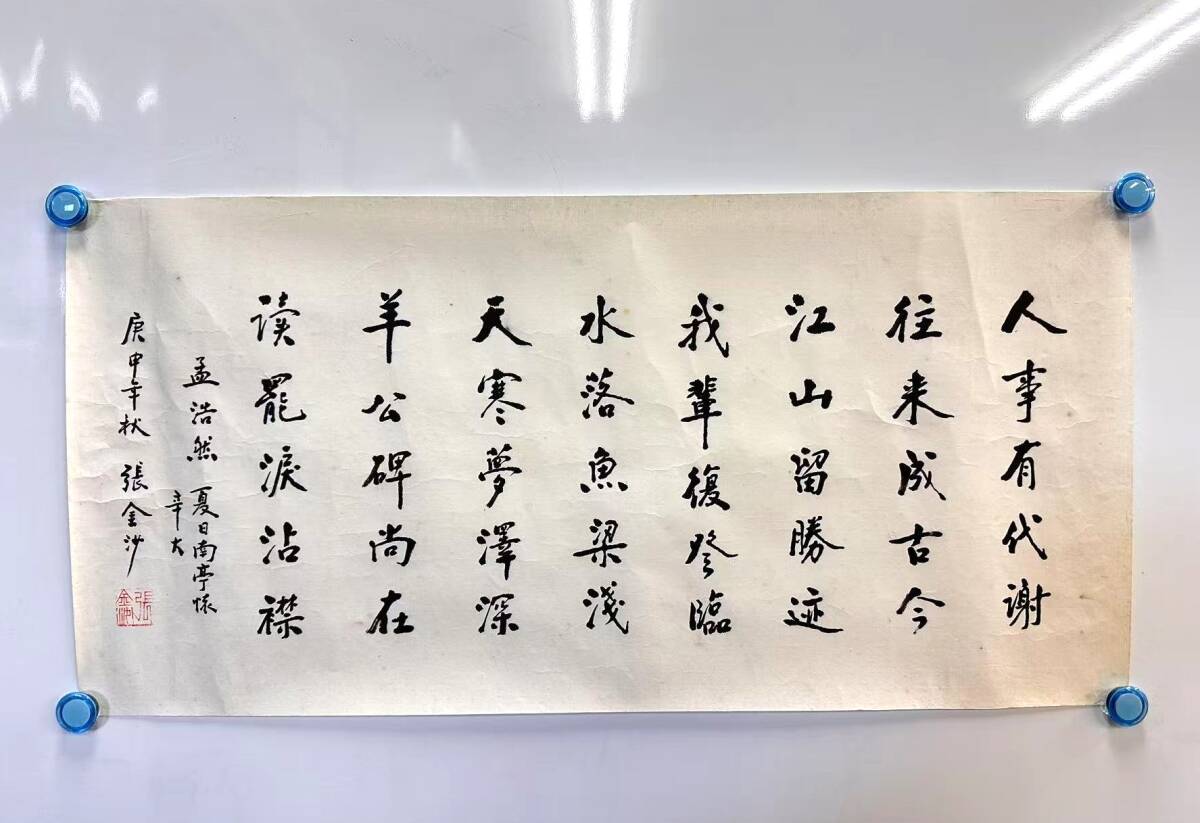 人事有代谢
往来成古今
江山留勝迹
我輩復登臨
水落魚梁淺
天寒夢澤深
羊公碑尚在
读罷淚沾襟
孟浩然 夏日南亭懷
辛大
庚申年秋 張金沙
張金沙